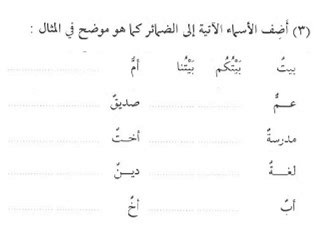 (٣) أضِف الأسماء الآتية إلى الضمائر كما هو موضح في المثال :
بيتٌ بَيْتُكُم بَيْتُنا أمٌّ
عـمٌّ صديقٌ
مدرسةٌ أخـتٌ
لغـةٌ ديـنٌ
أبٌ أخٌ